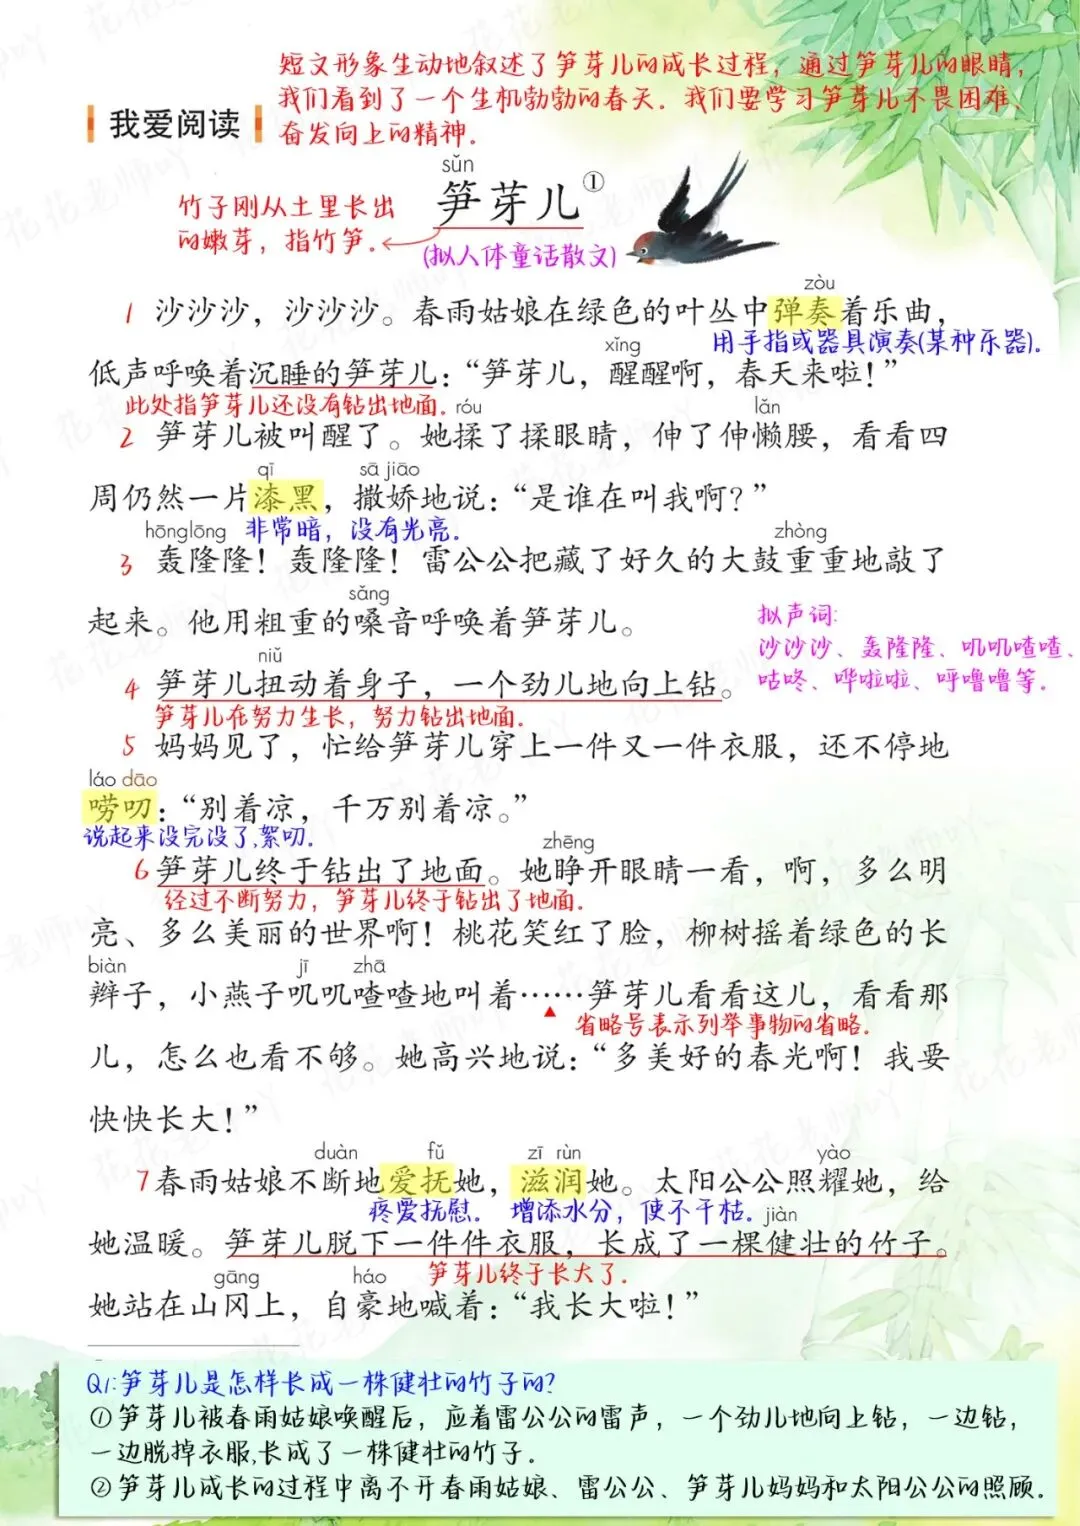 短文形象生动地叙述了笋芽儿的成长过程，通过笋芽儿的眼睛，
我们看到了一个生机勃勃的春天．我们要学习笋芽儿不畏困难、
奋发向上的精神．
我爱阅读
sǔn
笋芽儿①
竹子刚从土里长出
的嫩芽，指竹笋．
(拟人体童话散文)
zòu
1 沙沙沙，沙沙沙。春雨姑娘在绿色的叶丛中弹奏着乐曲，
用手指或器具演奏(某种乐器)．
xǐng
低声呼唤着沉睡的笋芽儿：“笋芽儿，醒醒啊，春天来啦！”
此处指笋芽儿还没有钻出地面．
róu lǎn
2 笋芽儿被叫醒了。她揉了揉眼睛，伸了伸懒腰，看看四
qī sā jiāo
周仍然一片漆黑，撒娇地说：“是谁在叫我啊？”
非常暗，没有光亮．
hōnglōng zhòng
3 轰隆隆！轰隆隆！雷公公把藏了好久的大鼓重重地敲了
sǎng
起来。他用粗重的嗓音呼唤着笋芽儿。
拟声词：
沙沙沙、轰隆隆、叽叽喳喳、
咕咚、哗啦啦、呼噜噜等．
niǔ
4 笋芽儿扭动着身子，一个劲儿地向上钻。
笋芽儿在努力生长，努力钻出地面．
5 妈妈见了，忙给笋芽儿穿上一件又一件衣服，还不停地
láo dāo
唠叨：“别着凉，千万别着凉。”
说起来没完没了，絮叨．
zhēng
6 笋芽儿终于钻出了地面。她睁开眼睛一看，啊，多么明
经过不断努力，笋芽儿终于钻出了地面．
亮、多么美丽的世界啊！桃花笑红了脸，柳树摇着绿色的长
biàn jī zhā
辫子，小燕子叽叽喳喳地叫着……笋芽儿看看这儿，看看那
省略号表示列举事物的省略．
儿，怎么也看不够。她高兴地说：“多美好的春光啊！我要
快快长大！”
duàn fǔ zī rùn yào
7 春雨姑娘不断地爱抚她，滋润她。太阳公公照耀她，给
疼爱抚慰． 增添水分，使不干枯．
jiàn
她温暖。笋芽儿脱下一件件衣服，长成了一棵健壮的竹子。
笋芽儿终于长大了．
gāng háo
她站在山冈上，自豪地喊着：“我长大啦！”
Q1：笋芽儿是怎样长成一株健壮的竹子的？
①笋芽儿被春雨姑娘唤醒后，应着雷公公的雷声，一个劲儿地向上钻，一边钻，
一边脱掉衣服，长成了一株健壮的竹子．
②笋芽儿成长的过程中离不开春雨姑娘、雷公公、笋芽儿妈妈和太阳公公的照顾．